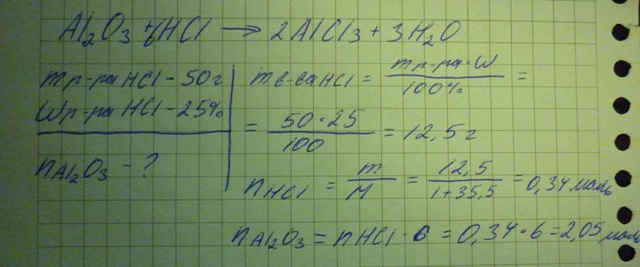 Al₂O₃ + 6HCl → 2AlCl₃ + 3H₂O
mр-ра HCl - 50г
Wр-ра HCl - 25%
nAl₂O₃ - ?
mв-ва HCl = mр-ра·W / 100% =
= 50·25 / 100 = 12,5 г
nHCl = m / M = 12,5 / 1+35,5 = 0,34 моль
nAl₂O₃ = nHCl · 6 = 0,34·6 = 2,05 моль